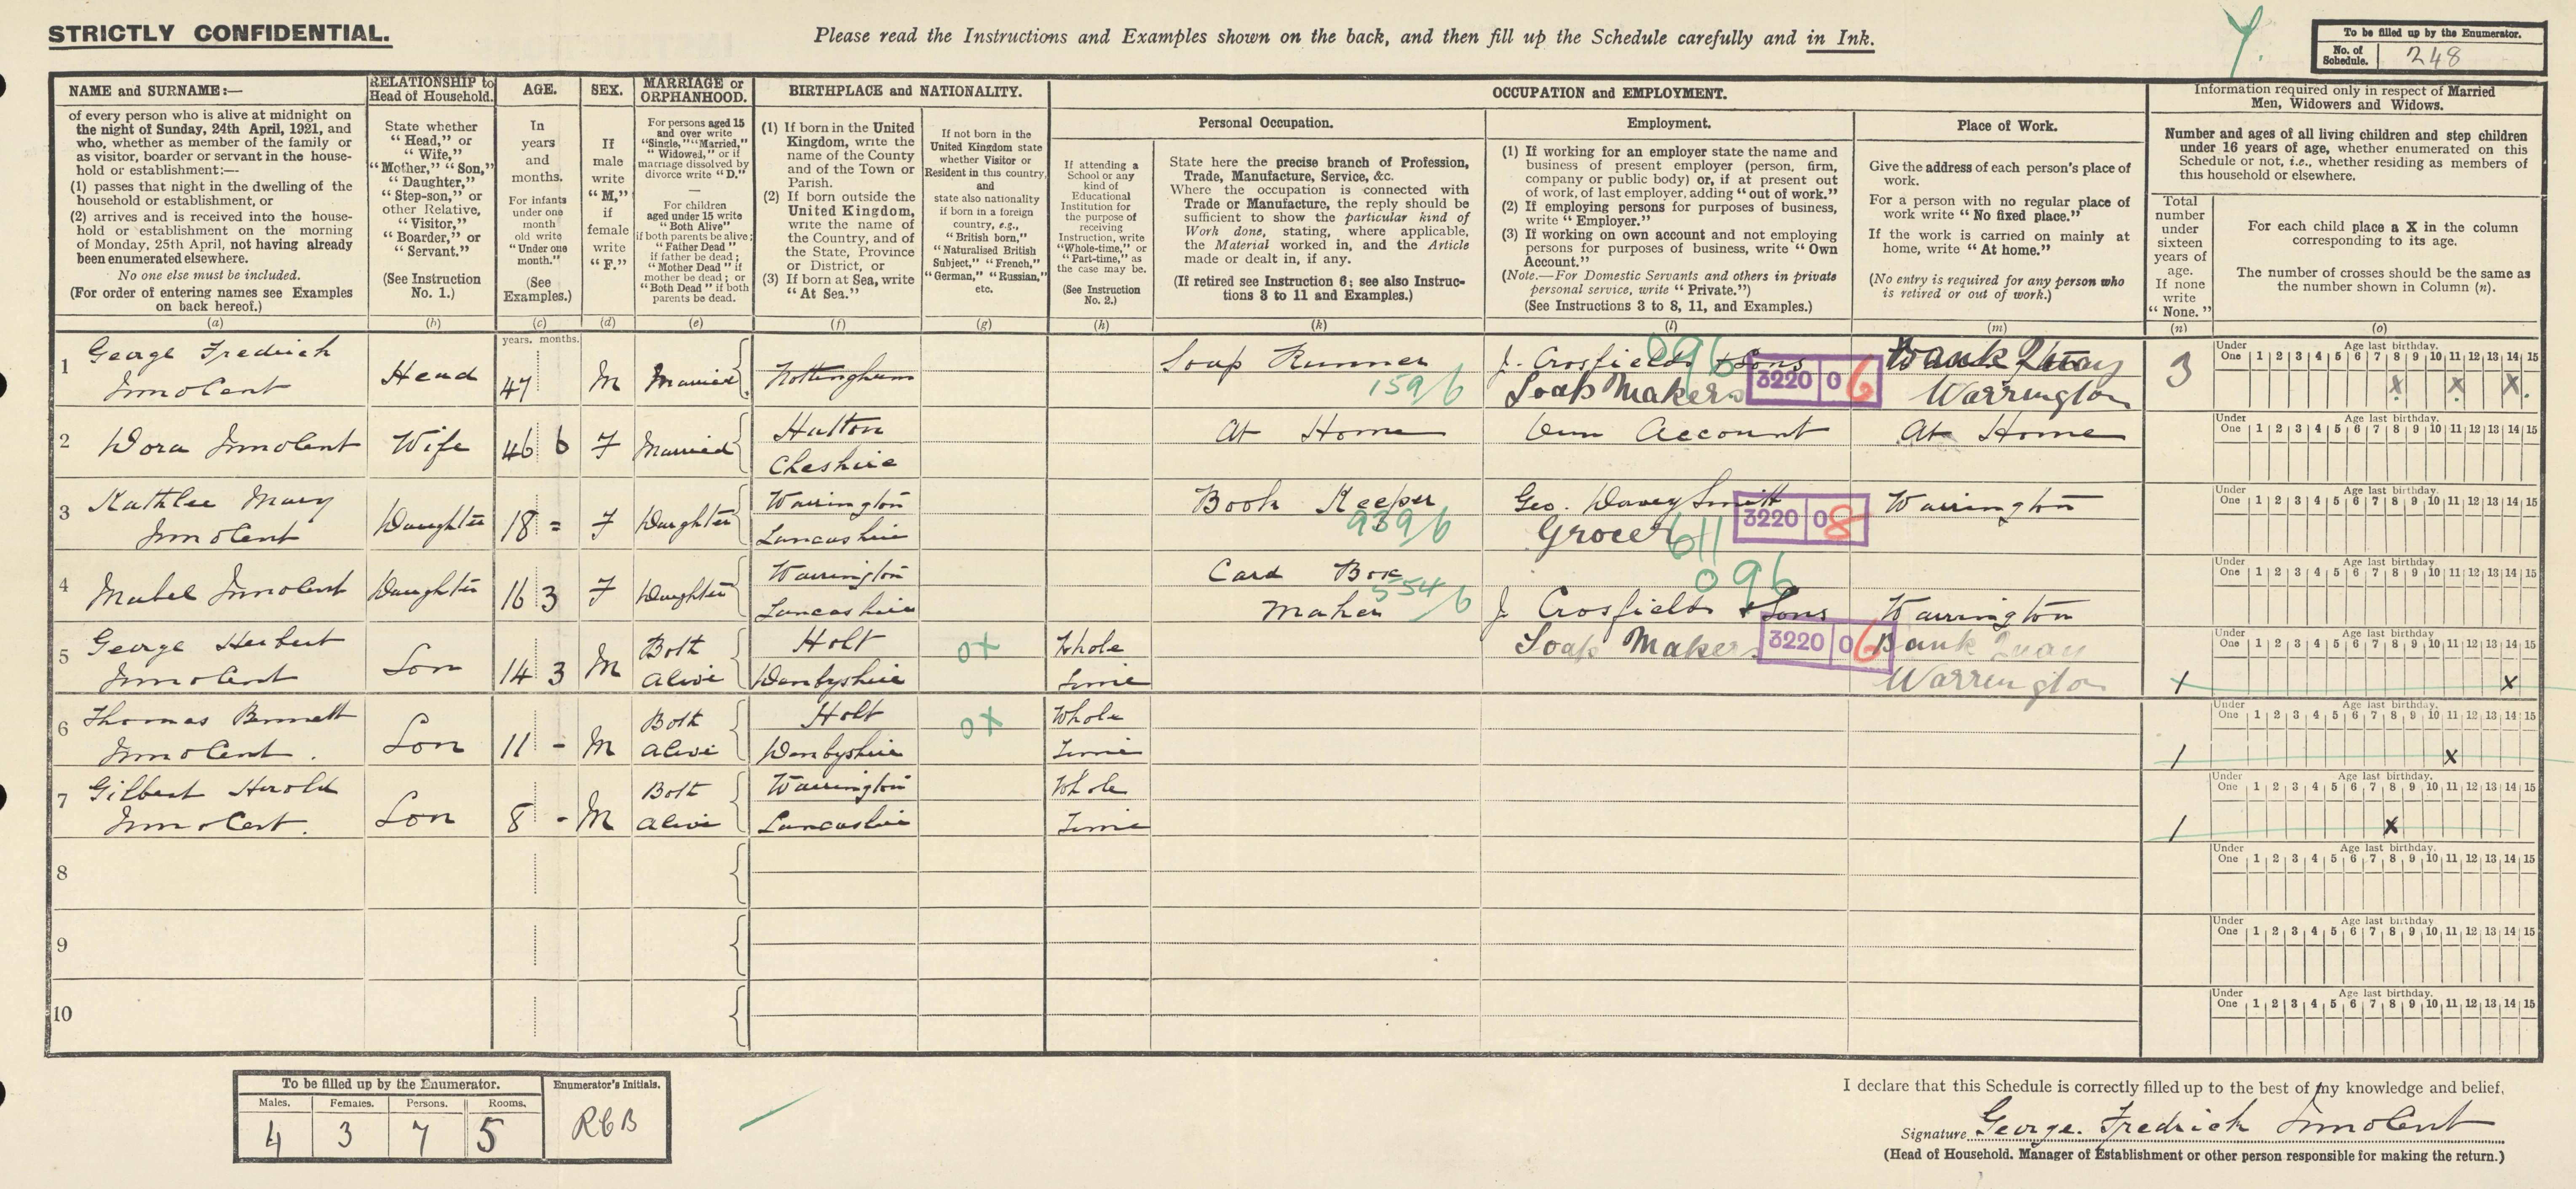 STRICTLY CONFIDENTIAL.
Please read the Instructions and Examples shown on the back, and then fill up the Schedule carefully and in Ink.
Y.
To be filled up by the Enumerator.
No. of Schedule. 248
NAME and SURNAME:—
of every person who is alive at midnight on
the night of Sunday, 24th April, 1921, and
who, whether as member of the family or
as visitor, boarder or servant in the house-
hold or establishment:—
(1) passes that night in the dwelling of the
household or establishment, or
(2) arrives and is received into the house-
hold or establishment on the morning
of Monday, 25th April, not having already
been enumerated elsewhere.
No one else must be included.
(For order of entering names see Examples
on back hereof.)
(a)
RELATIONSHIP to
Head of Household.
State whether
"Head," or
"Wife,"
"Mother," "Son,"
"Daughter,"
"Step-son," or
other Relative,
"Visitor,"
"Boarder," or
"Servant."
(See Instruction
No. 1.)
(b)
AGE.
In
years
and
months.
For infants
under one
month
old write
"Under one
month."
(See
Examples.)
(c)
SEX.
If
male
write
"M,"
if
female
write
"F."
(d)
MARRIAGE or
ORPHANHOOD.
For persons aged 15
and over write
"Single," "Married,"
"Widowed," or if
marriage dissolved by
divorce write "D."
—
For children
aged under 15 write
"Both Alive"
if both parents be alive;
"Father Dead"
if father be dead;
"Mother Dead" if
mother be dead; or
"Both Dead" if both
parents be dead.
(e)
BIRTHPLACE and NATIONALITY.
(1) If born in the United
Kingdom, write the
name of the County
and of the Town or
Parish.
(2) If born outside the
United Kingdom,
write the name of
the Country, and of
the State, Province
or District, or
(3) If born at Sea, write
"At Sea."
(f)
If not born in the
United Kingdom state
whether Visitor or
Resident in this country,
and
state also nationality
if born in a foreign
country, e.g.,
"British born,"
"Naturalised British
Subject," "French,"
"German," "Russian,"
etc.
(g)
OCCUPATION and EMPLOYMENT.
If attending a
School or any
kind of
Educational
Institution for
the purpose of
receiving
Instruction, write
"Whole-time," or
"Part-time," as
the case may be.
(See Instruction
No. 2.)
(h)
Personal Occupation.
State here the precise branch of Profession,
Trade, Manufacture, Service, &c.
Where the occupation is connected with
Trade or Manufacture, the reply should be
sufficient to show the particular kind of
Work done, stating, where applicable,
the Material worked in, and the Article
made or dealt in, if any.
(If retired see Instruction 6; see also Instruc-
tions 3 to 11 and Examples.)
(k)
Employment.
(1) If working for an employer state the name and
business of present employer (person, firm,
company or public body) or, if at present out
of work, of last employer, adding "out of work."
(2) If employing persons for purposes of business,
write "Employer."
(3) If working on own account and not employing
persons for purposes of business, write "Own
Account."
(Note.—For Domestic Servants and others in private
personal service, write "Private.")
(See Instructions 3 to 8, 11, and Examples.)
(l)
Place of Work.
Give the address of each person's place of
work.
For a person with no regular place of
work write "No fixed place."
If the work is carried on mainly at
home, write "At home."
(No entry is required for any person who
is retired or out of work.)
(m)
Information required only in respect of Married
Men, Widowers and Widows.
Number and ages of all living children and step children
under 16 years of age, whether enumerated on this
Schedule or not, i.e., whether residing as members of
this household or elsewhere.
Total
number
under
sixteen
years of
age.
If none
write
"None."
(n)
For each child place a X in the column
corresponding to its age.
The number of crosses should be the same as
the number shown in Column (n).
(o)
years. months.
1 George Fredrick
Innocent Head 47 M Married Nottingham
Soap Runner 159/6
J. Crosfields & Sons 096
Soap Makers 3220 0 6
Bank Quay
Warrington
3
Under One 1 2 3 4 5 6 7 8 9 10 11 12 13 14 15
Age last birthday.
x x x.
2 Dora Innocent Wife 46 6 F Married
Halton
Cheshire
At Home Own Account At Home
Under One 1 2 3 4 5 6 7 8 9 10 11 12 13 14 15
Age last birthday.
3 Kathlee Mary
Innocent Daughter 18 = F Daughter
Warrington
Lancashire
Book Keeper 939/6
Geo. Davey Smith
Grocer 611 3220 0 8
Warrington
Under One 1 2 3 4 5 6 7 8 9 10 11 12 13 14 15
Age last birthday.
4 Mabel Innocent Daughter 16 3 F Daughter
Warrington
Lancashire
Card Box
Maker 554/6
096
J Crosfields & Sons Warrington
Soap Makers 3220 0 6 Bank Quay
Warrington
Under One 1 2 3 4 5 6 7 8 9 10 11 12 13 14 15
Age last birthday.
5 George Herbert
Innocent Son 14 3 M
Both
Alive
Holt
Denbyshire
OX
Whole
Time
1
Under One 1 2 3 4 5 6 7 8 9 10 11 12 13 14 15
Age last birthday.
x
6 Thomas Bennett
Innocent. Son 11 - M
Both
Alive
Holt
Denbyshire
OX
Whole
Time
1
Under One 1 2 3 4 5 6 7 8 9 10 11 12 13 14 15
Age last birthday.
x
7 Gilbert Harold
Innocent. Son 8 - M
Both
Alive
Warrington
Lancashire
Whole
Time
1
Under One 1 2 3 4 5 6 7 8 9 10 11 12 13 14 15
Age last birthday.
x
8
Under One 1 2 3 4 5 6 7 8 9 10 11 12 13 14 15
Age last birthday.
9
Under One 1 2 3 4 5 6 7 8 9 10 11 12 13 14 15
Age last birthday
10
Under One 1 2 3 4 5 6 7 8 9 10 11 12 13 14 15
Age last birthday.
To be filled up by the Enumerator.
Males. Females. Persons. Rooms.
4 3 7 5
Enumerator's Initials.
RCB
I declare that this Schedule is correctly filled up to the best of my knowledge and belief.
Signature George. Fredrick Innocent
(Head of Household, Manager of Establishment or other person responsible for making the return.)